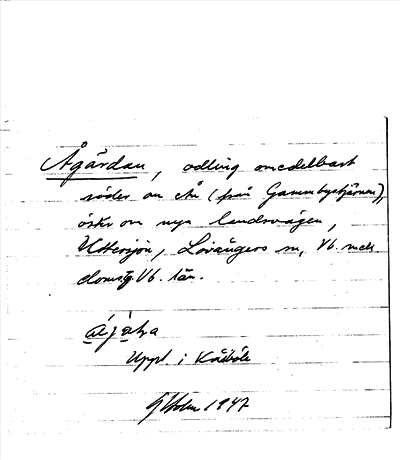 Ågärdan, odling omedelbart
söder om Ån (från Gammbystjärnen),
öster om nya landsvägen,
Uttersjön, Lövångers sn, Vb. med.
doms. Vb. län.
Uppt. i Kåsböle
G Holm 1947